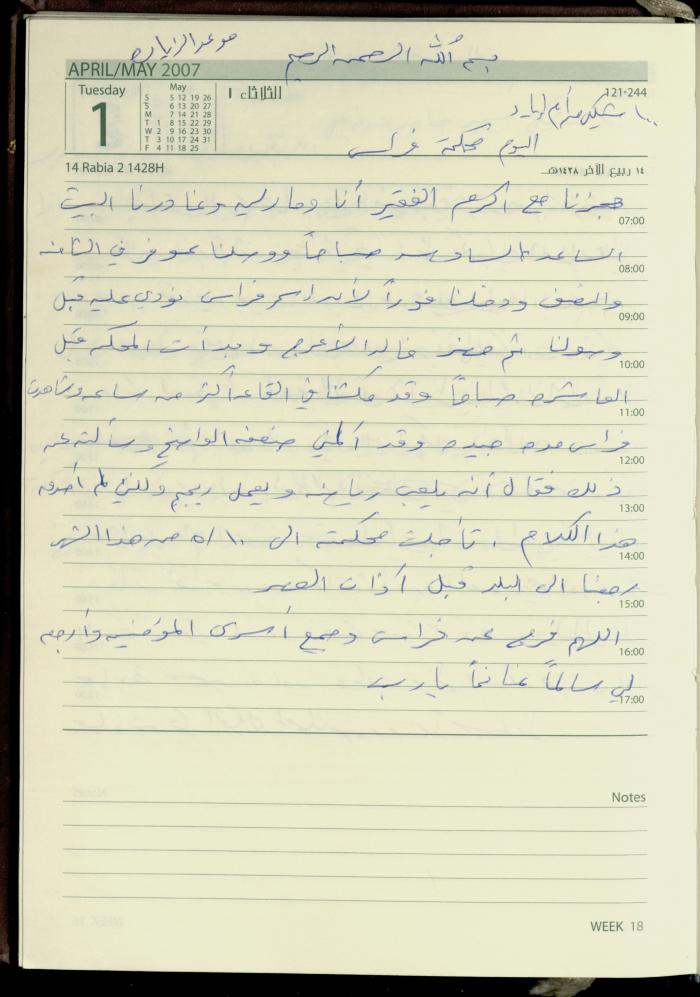 موعد الزيارة
بسم الله الرحمن الرحيم
APRIL/MAY 2007
Tuesday
1
May
S 5 12 19 26
S 6 13 20 27
M 7 14 21 28
T 1 8 15 22 29
W 2 9 16 23 30
T 3 10 17 24 31
F 4 11 18 25
الثلاثاء ١
121-244
١٠٠ شيكل من أم إياد
اليوم محكمة فراس
14 Rabia 2 1428H
١٤ ربيع الآخر ١٤٢٨هـ
حجزنا مع أكرم الفقير أنا و وغادرنا البيت
07:00
الساعة السادسة صباحاً ووصلنا عوفر في الثامنة
08:00
والنصف ودخلنا فوراً لأن اسم فراس نودي عليه قبل
09:00
وصولنا ثم حضر خالد الأعرج وبدأت المحكمة قبل
10:00
العاشرة صباحاً وقد مكثنا في القاعة أكثر من ساعة وشاهدت
11:00
فراس مدة جيدة وقد آلمني ضعفه الواضح وسألته عن
12:00
ذلك فقال أنه يلعب رياضة ويعمل ريجيم ولكني لم أصدق
13:00
هذا الكلام . تأجلت محكمته الى ١٠/٥ من هذا الشهر
14:00
رجعنا الى البلد قبل أذان العصر
15:00
اللهم فرج عن فراس وجميع أسرى المؤمنين وأرجعه
16:00
لي سالماً غانماً يا رب
17:00
Notes
WEEK 18